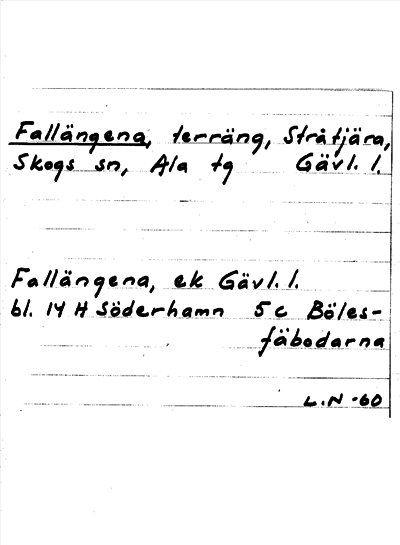 Fallängena, terräng, Stråtjära,
Skogs sn, Ala tg Gävl. l.
Fallängena, ek Gävl. l.
bl. 14 H Söderhamn 5 c Böles-
fäbodarna
L.N -60